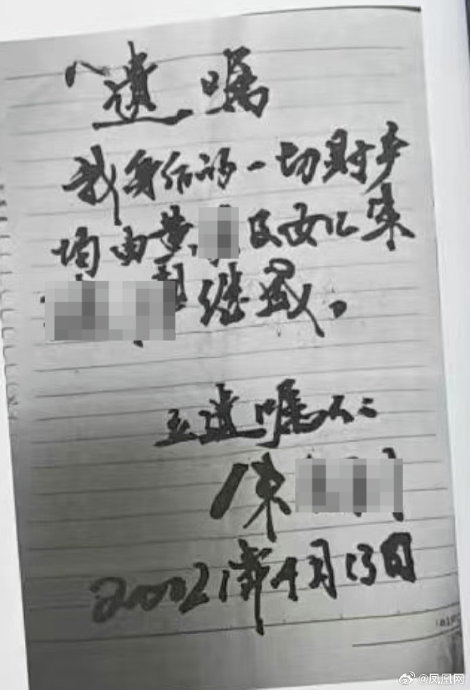 遗嘱
我身后的一切财产
均由黄 及女儿
继承。
立遗嘱人:
陈
2002年4月13日
@凤凰网